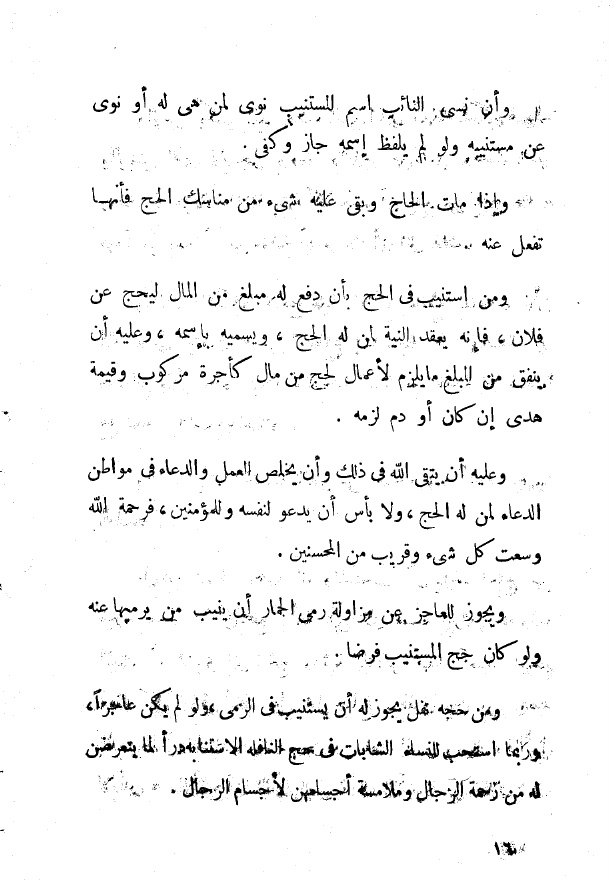 وأن نسى النائب اسم المستنيب نوى لمن هى له أو نوى
عن مستنيبه ولو لم يلفظ إسمه جاز وكفى .
وإذا مات الحاج وبقى عليه شىء من مناسك الحج فأنهـا
تفعل عنه .
ومن استنيب فى الحج بأن دفع له مبلغ من المال ليحج عن
فلان ، فإنه يعقد النية لمن له الحج ، ويسميه بإسمه ، وعليه أن
ينفق من المبلغ مايلزم لأعمال الحج من مال كأجرة مركوب وقيمة
هدى إن كان أو دم لزمه .
وعليه أن يتقى الله فى ذلك وأن يخلص العمل والدعاء فى مواطن
الدعاء لمن له الحج ، ولا بأس أن يدعو لنفسه وللمؤمنين ، فرحمة الله
وسعت كل شىء وقريب من المحسنين .
ويجوز للعاجز عن مزاولة رمى الجمار أن ينيب من يرميها عنه
ولو كان حج المستنيب فرضا .
ومن حجه نفل يجوز له أن يستنيب فى الرمى ولو لم يكن عاجزاً ،
وربما استحب للنساء الشابات فى حج النافله الاستنابه درأ لما يتعرضن
له من زحمة الرجال وملامسة أجسامهن لأجسام الرجال .